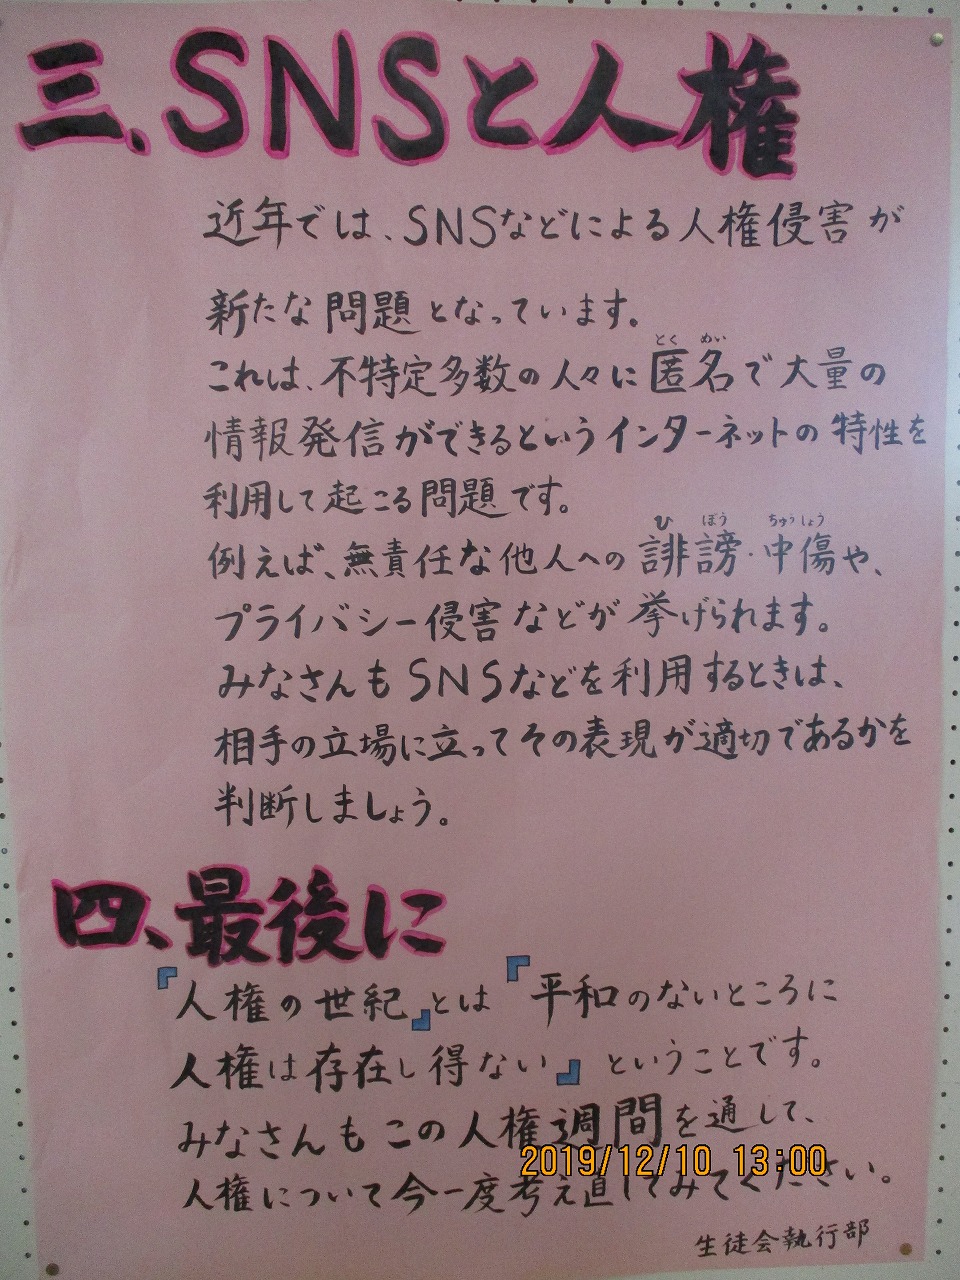 三、SNSと人権
近年では、SNSなどによる人権侵害が
新たな問題となっています。
とく めい
これは、不特定多数の人々に匿名で大量の
情報発信ができるというインターネットの特性を
利用して起こる問題です。
ひ ぼう ちゅうしょう
例えば、無責任な他人への誹謗・中傷や、
プライバシー侵害などが挙げられます。
みなさんもSNSなどを利用するときは、
相手の立場に立ってその表現が適切であるかを
判断しましょう。
四、最後に
『人権の世紀』とは『平和のないところに
人権は存在し得ない』ということです。
みなさんもこの人権週間を通して、
2019/12/10 13:00
人権について今一度考え直してみてください。
生徒会執行部